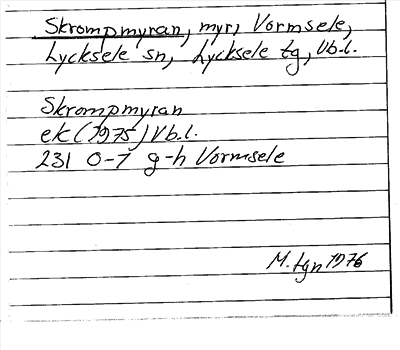 Skrompmyran, myr, Vormsele,
Lycksele sn, Lycksele tg, Vb.l.
Skrompmyran
ek (1975) Vb.l.
231 0-1 g-h Vormsele
M. tgn 1976